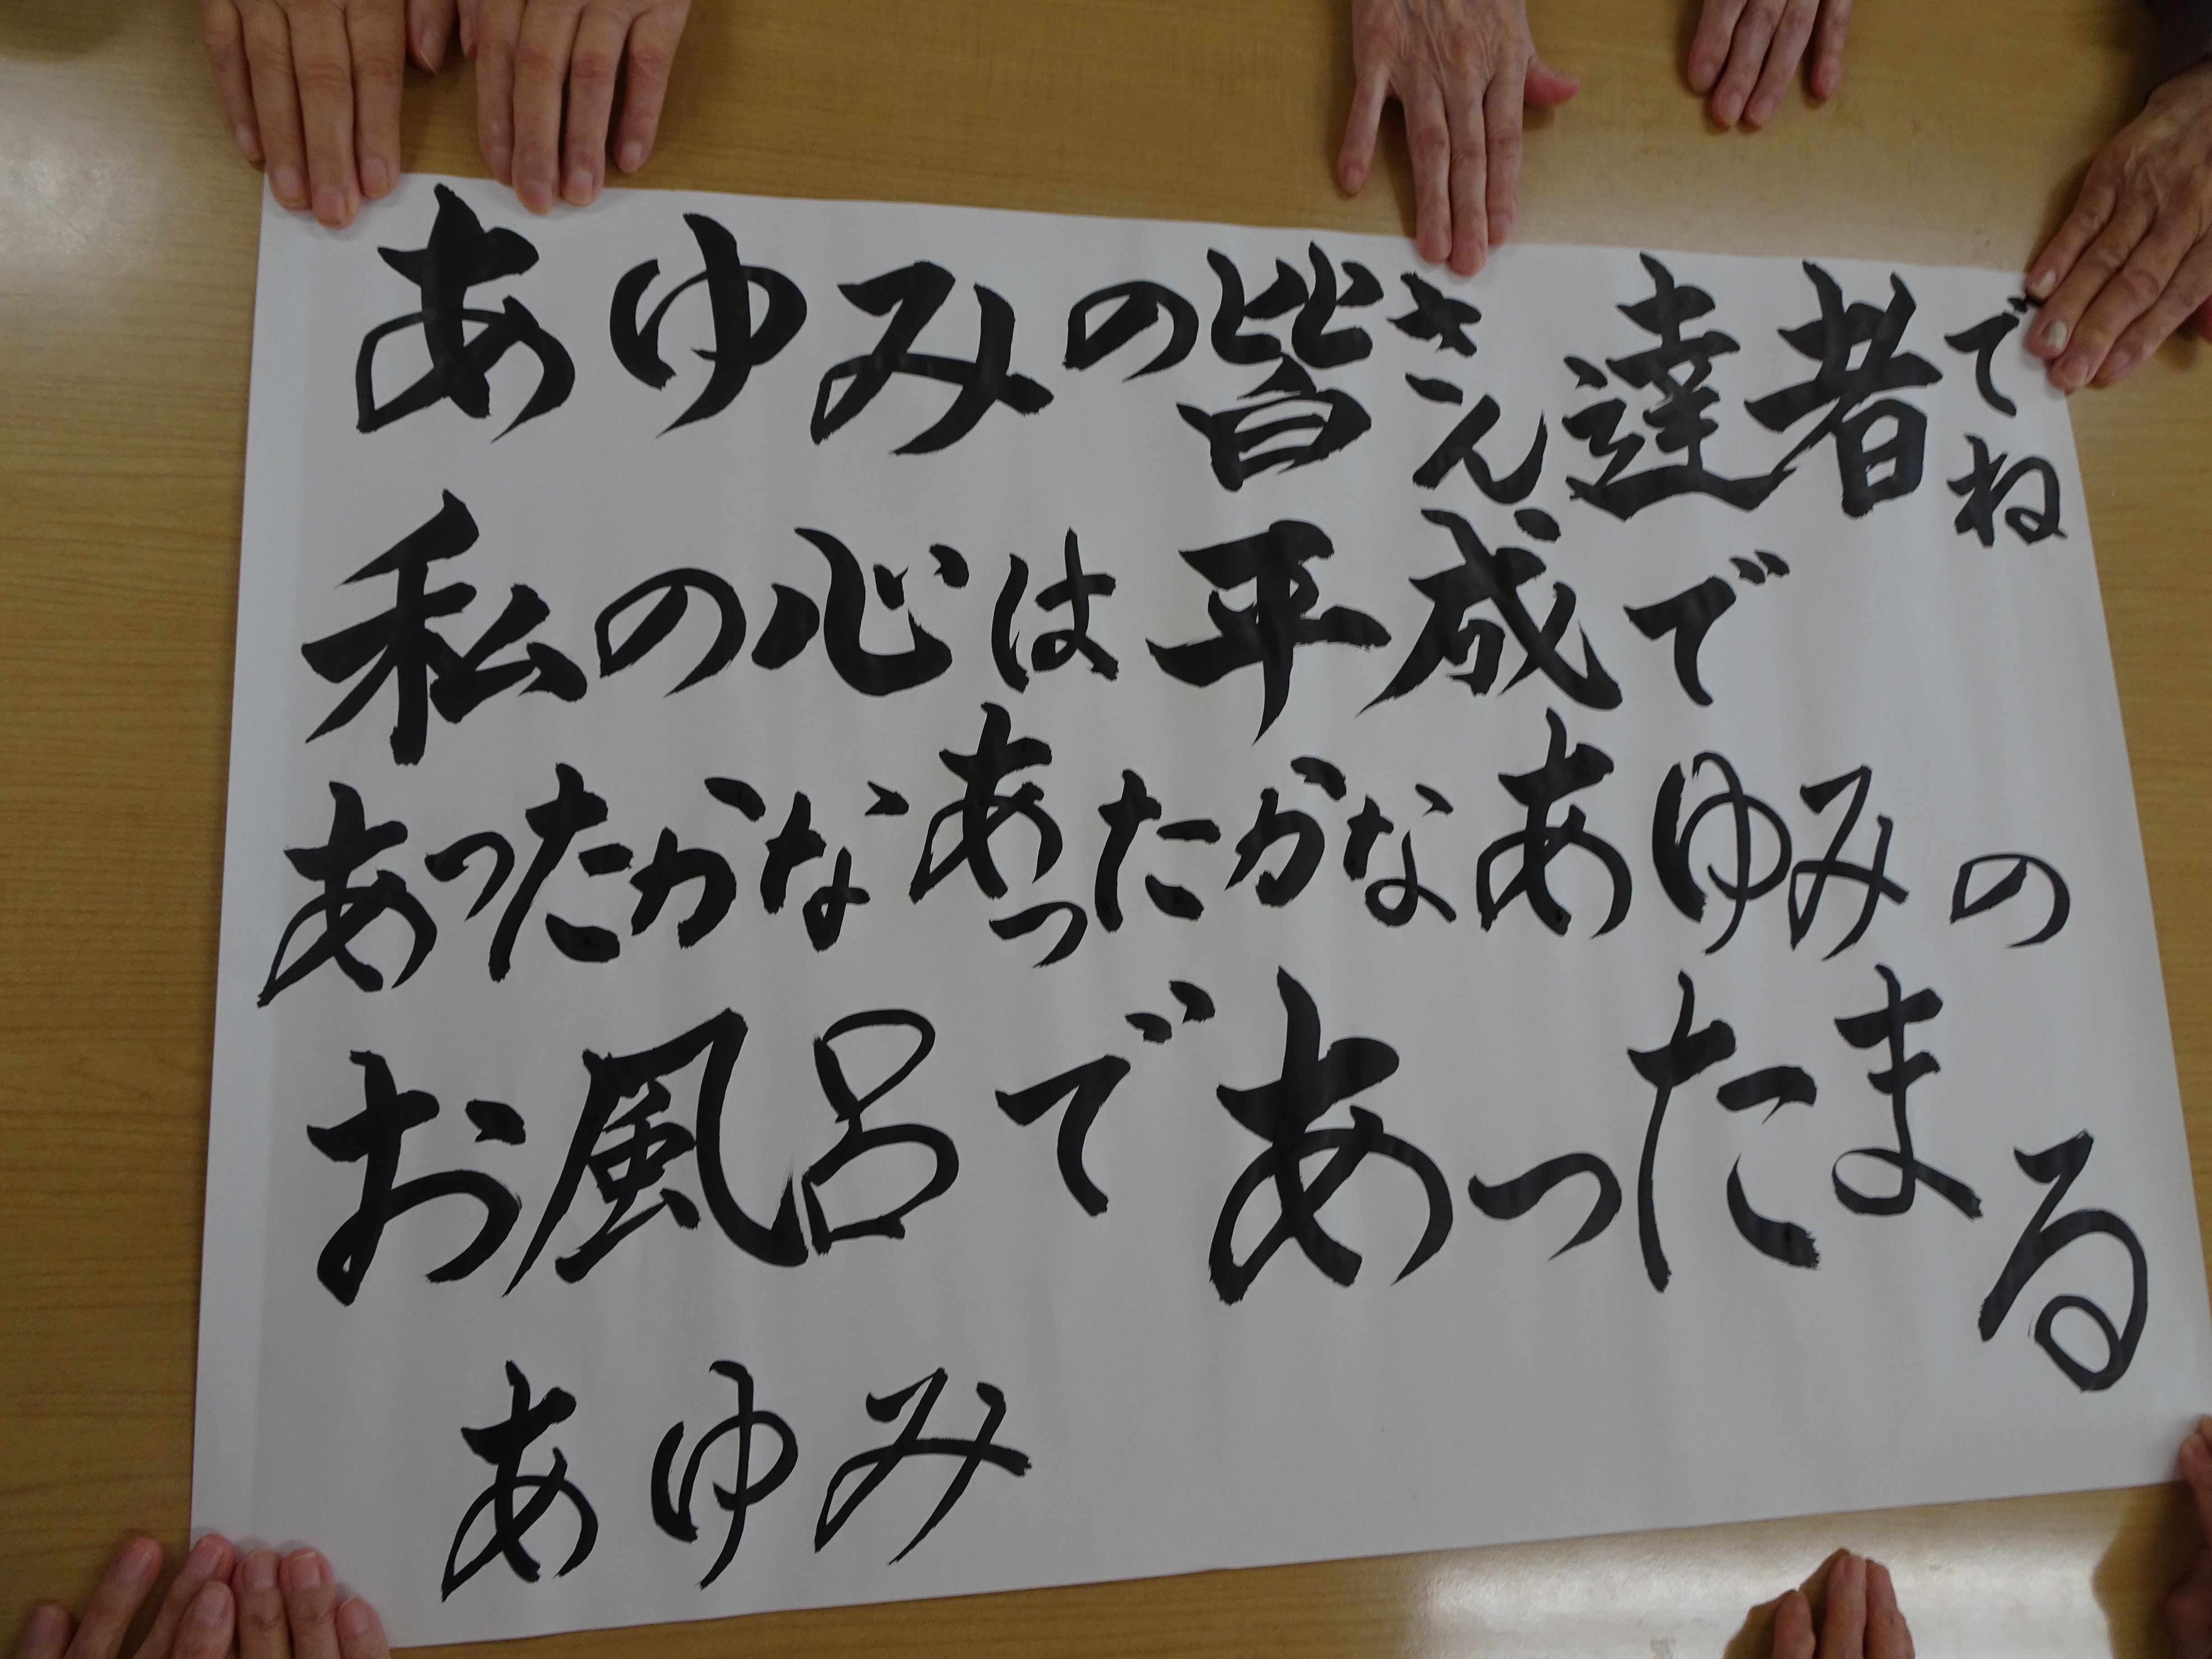 あゆみの皆さん達者でね
私の心は平成で
あったかなあったかなあゆみの
お風呂であったまる
あゆみ